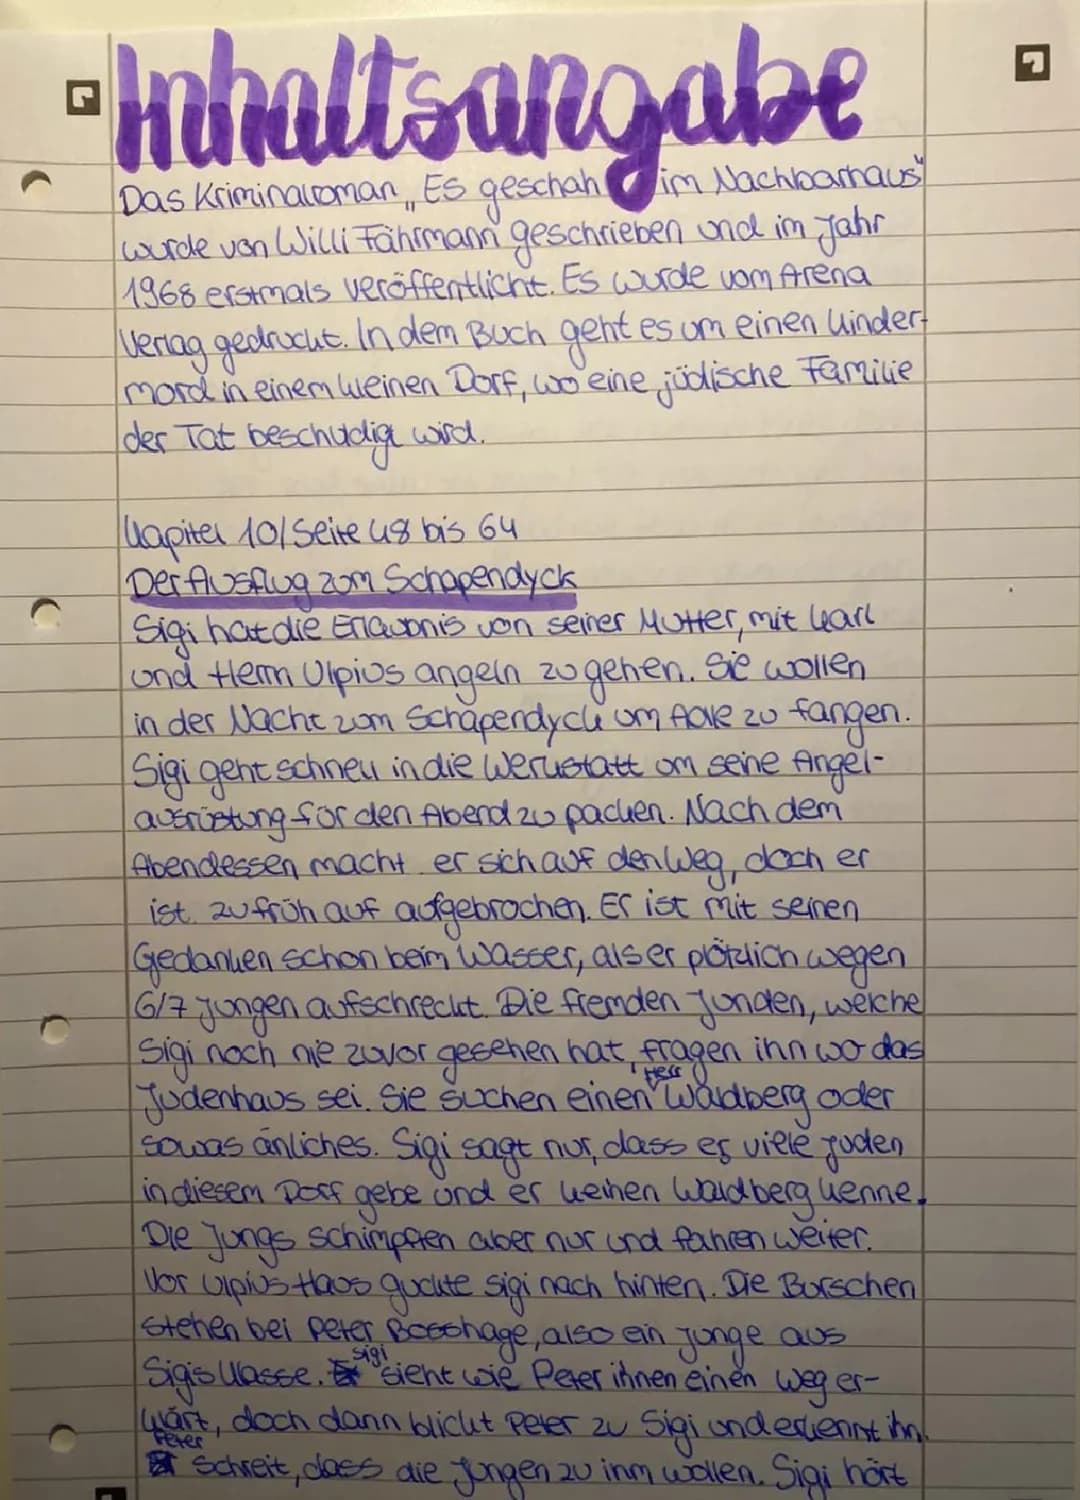 Inhaltsangabe
Das Kriminalroman „Es geschah im Nachbarhaus"
wurde von Willi Fährmann geschrieben und im Jahr
1968 erstmals veröffentlicht. Es wurde vom Arena
Verlag gedruckt. In dem Buch geht es um einen Kinder-
mord in einem kleinen Dorf, wo eine jüdische Familie
der Tat beschudigt wird.
Kapitel 10/Seite 48 bis 64
Der Ausflug zum Schapendyck
Sigi hat die Erlaubnis von seiner Mutter, mit Karl
und Herrn Ulpius angeln zu gehen. Sie wollen
in der Nacht zum Schapendyck um Aale zu fangen.
Sigi geht schnell in die Werkstatt um seine Angel-
ausrüstung für den Abend zu packen. Nach dem
Abendessen macht er sich auf den Weg, doch er
ist zu früh auf aufgebrochen. Er ist mit seinen
Gedanken schon beim Wasser, als er plötzlich wegen
6/7 Jungen aufschreckt. Die fremden Jungen, welche
Sigi noch nie zuvor gesehen hat, fragen ihn wo das
Judenhaus sei. Sie suchen einen Herr Waldberg oder
sowas änliches. Sigi sagt nur, dass es viele Juden
in diesem Dorf gebe und er keinen Waldberg kenne.
Die Jungs schimpfen aber nur und fahren weiter.
Vor Ulpius Haus guckte Sigi nach hinten. Die Burschen
stehen bei Peter Bosshage, also ein Junge aus
Sigis Klasse. Sigi sieht wie Peter ihnen einen Weg er-
klärt, doch dann blickt Peter zu Sigi und erkennt ihn.
Peter schreit, dass die Jungen zu ihm wollen. Sigi hört